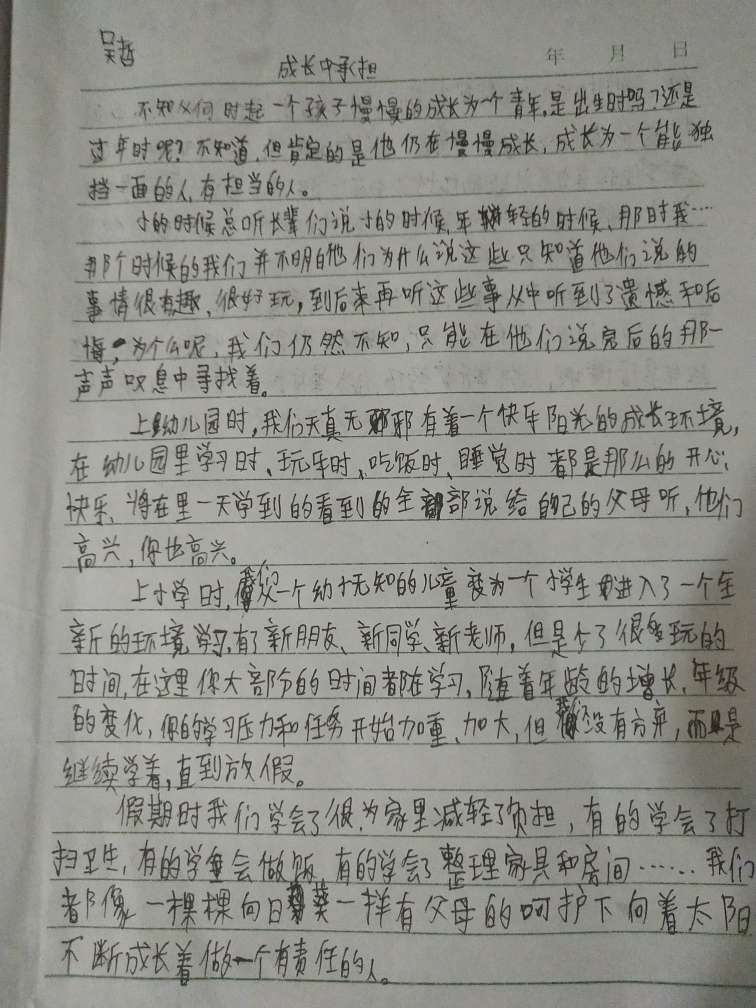 吴哲
年 月 日
成长中承担
不知从何时起一个孩子慢慢的成长为一个青年,是出生时吗?还是
过年时呢?不知道,但肯定的是他仍在慢慢成长,成长为一个能独
挡一面的人,有担当的人。
小的时候总听长辈们说小的时候,年轻的时候、那时我……
那个时候的我们并不明白他们为什么说这些只知道他们说的
事情很有趣、很好玩,到后来再听这些事从中听到了遗憾和后
悔,为个么呢,我们仍然不知,只能在他们说完后的那一
声声叹息中寻找着。
上幼儿园时,我们天真无邪有着一个快乐阳光的成长环境,
在幼儿园里学习时、玩乐时、吃饭时、睡觉时都是那么的开心、
快乐、将在里一天学到的看到的全部说给自己的父母听,他们
高兴,你也高兴。
上小学时,我们从一个幼小无知的儿童变为一个小学生进入了一个全
新的环境学习,有了新朋友、新同学、新老师,但是少了很多玩的
时间,在这里你大部分的时间都在学习,随着年龄的增长、年级
的变化,你的学习压力和任务开始加重、加大,但我们没有放弃,而是
继续学着,直到放假。
假期时我们学会了很为家里减轻了负担,有的学会了打
扫卫生,有的学会做饭,有的学会了整理家具和房间……我们
都像一棵棵向日葵一样有父母的呵护下向着太阳
不断成长着做一个有责任的人。